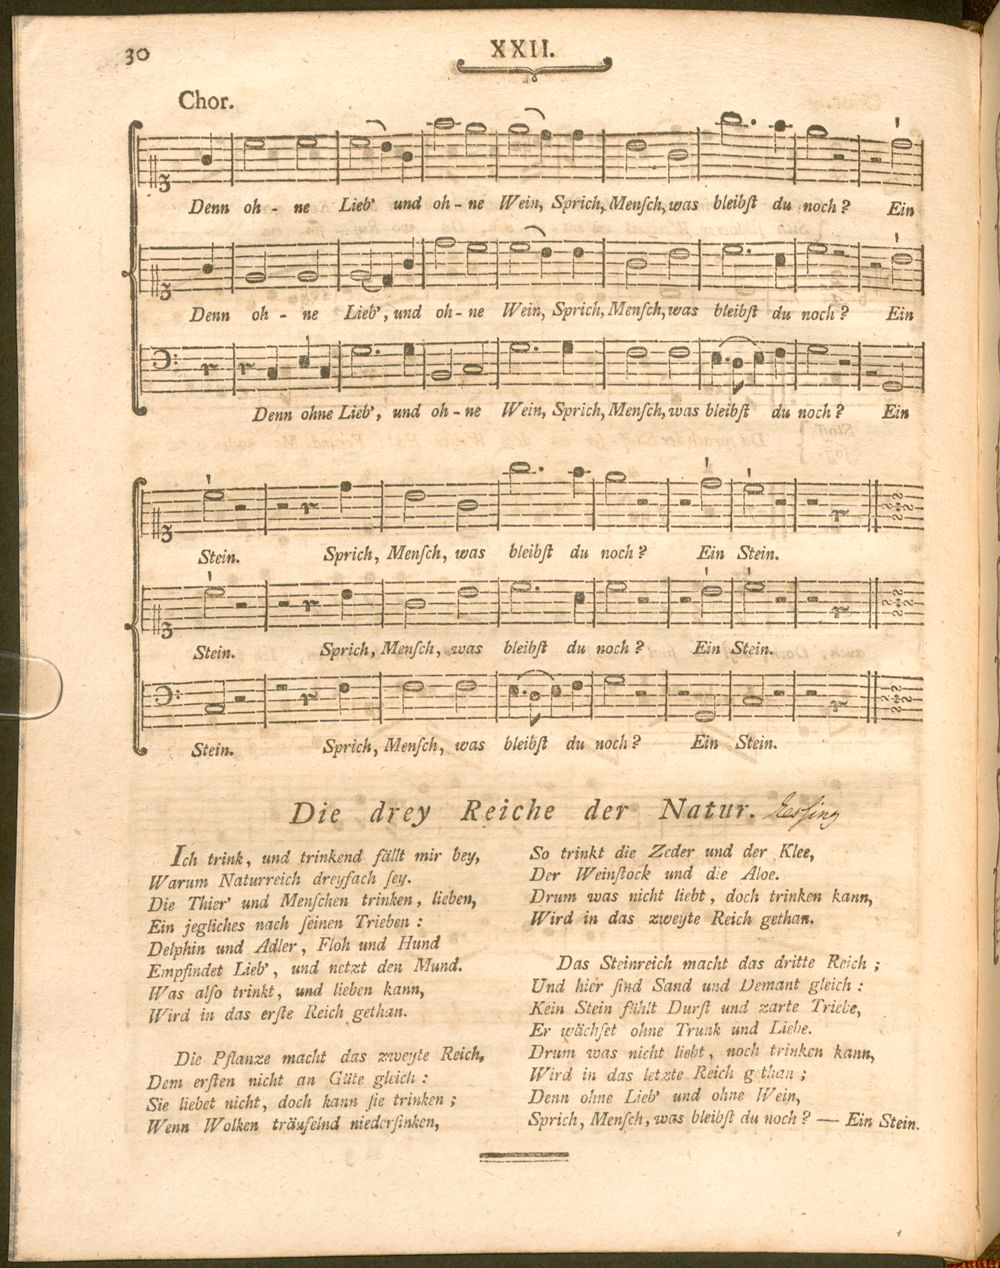 30
XXII.
Chor.
Denn oh - ne Lieb' und oh - ne Wein, Sprich, Menſch, was bleibſt du noch? Ein
Denn oh - ne Lieb', und oh - ne Wein, Sprich, Menſch, was bleibſt du noch? Ein
Denn ohne Lieb', und oh - ne Wein, Sprich, Menſch, was bleibſt du noch? Ein
Stein. Sprich, Menſch, was bleibſt du noch? Ein Stein.
Stein. Sprich, Menſch, was bleibſt du noch? Ein Stein.
Stein. Sprich, Menſch, was bleibſt du noch? Ein Stein.
Die drey Reiche der Natur. Lessing
Ich trink, und trinkend fällt mir bey,
Warum Naturreich dreyfach ſey.
Die Thier' und Menſchen trinken, lieben,
Ein jegliches nach ſeinen Trieben :
Delphin und Adler, Floh und Hund
Empfindet Lieb', und netzt den Mund.
Was alſo trinkt, und lieben kann,
Wird in das erſte Reich gethan.
Die Pflanze macht das zweyte Reich,
Dem erſten nicht an Güte gleich :
Sie liebet nicht, doch kann ſie trinken ;
Wenn Wolken träufelnd niederſinken,
So trinkt die Zeder und der Klee,
Der Weinſtock und die Aloe.
Drum was nicht liebt, doch trinken kann,
Wird in das zweyte Reich gethan.
Das Steinreich macht das dritte Reich ;
Und hier ſind Sand und Demant gleich :
Kein Stein fühlt Durſt und zarte Triebe,
Er wächſet ohne Trunk und Liebe.
Drum was nicht liebt, noch trinken kann,
Wird in das letzte Reich gethan ;
Denn ohne Lieb' und ohne Wein,
Sprich, Menſch, was bleibſt du noch? — Ein Stein.